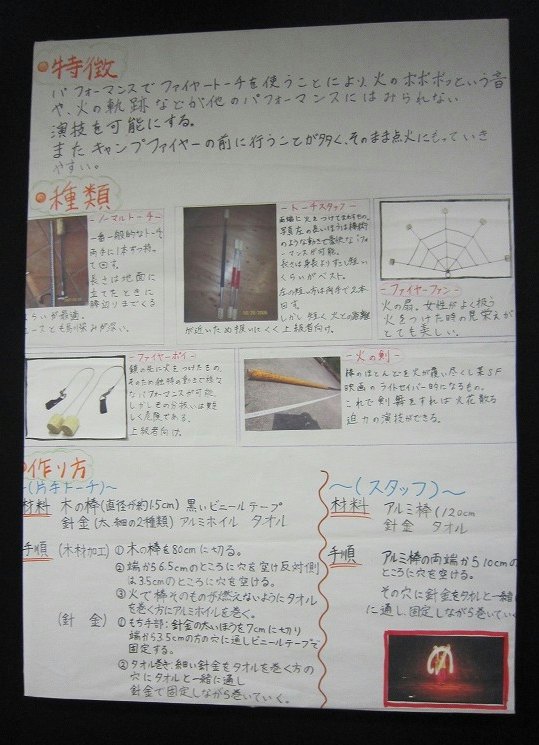 特徴
パフォーマンスでファイヤートーチを使うことにより、火のボボボッという音
や、火の軌跡などが他のパフォーマンスにはみられない
演技を可能にする。
またキャンプファイヤーの前に行うことが多く、そのまま点火にもっていき
やすい。
種類
ーノーマルトーチー
一番一般的なトーチ
両手に1本ずつ持っ
て回す。
長さは地面に
立てたときに
腰辺りまでくる
らいが最適。
ースとも馴染みが深い。
ートーチスタッフー
両端に火をつけてまわすもの。
写真左の長いほうは棒術
のような動きで豪快なパフォ
ーマンスが可能。
長さは身長より少し短い
くらいがベスト。
左の短い方は両手で2本
回す。
しかし短く、火との距離
が近いため扱いにくく上級者向け。
ーファイヤーファンー
火の扇。女性がよく扱う
火をつけた時の見栄えが
とても美しい。
ーファイヤーポイー
鎖の先に火をつけたもの。
そのため独特の動きで様々
なパフォーマンスが可能。
しかしその分扱いは難
しく危険である。
上級者向け。
ー火の剣ー
棒のほとんどを火が覆い尽くし某SF
映画のライトセイバー的になるもの。
これで剣舞をすれば火花散る
迫力の演技ができる。
作り方
〜(片手トーチ)〜
材料 木の棒(直径が約1.5cm) 黒いビニールテープ
針金(太、細の2種類) アルミホイル タオル
手順 (木材加工) ①木の棒を80cmに切る。
②端から6.5cmのところに穴を空け反対側
は3.5cmのところに穴を空ける。
③火で棒そのものが燃えないようにタオル
を巻く方にアルミホイルを巻く。
(針金) ①もち手部:針金の太いほうを7cmに切り
端から3.5cmの方の穴に通しビニールテープで
固定する。
②タオル巻き:細い針金をタオルを巻く方の
穴にタオルと一緒に通し
針金で固定しながら巻いていく。
〜(スタッフ)〜
材料 アルミ棒(120cm
針金 タオル
手順 アルミ棒の両端から10cmの
ところに穴を空ける。
その穴に針金をタオルと一緒
に通し、固定しながら巻いていく